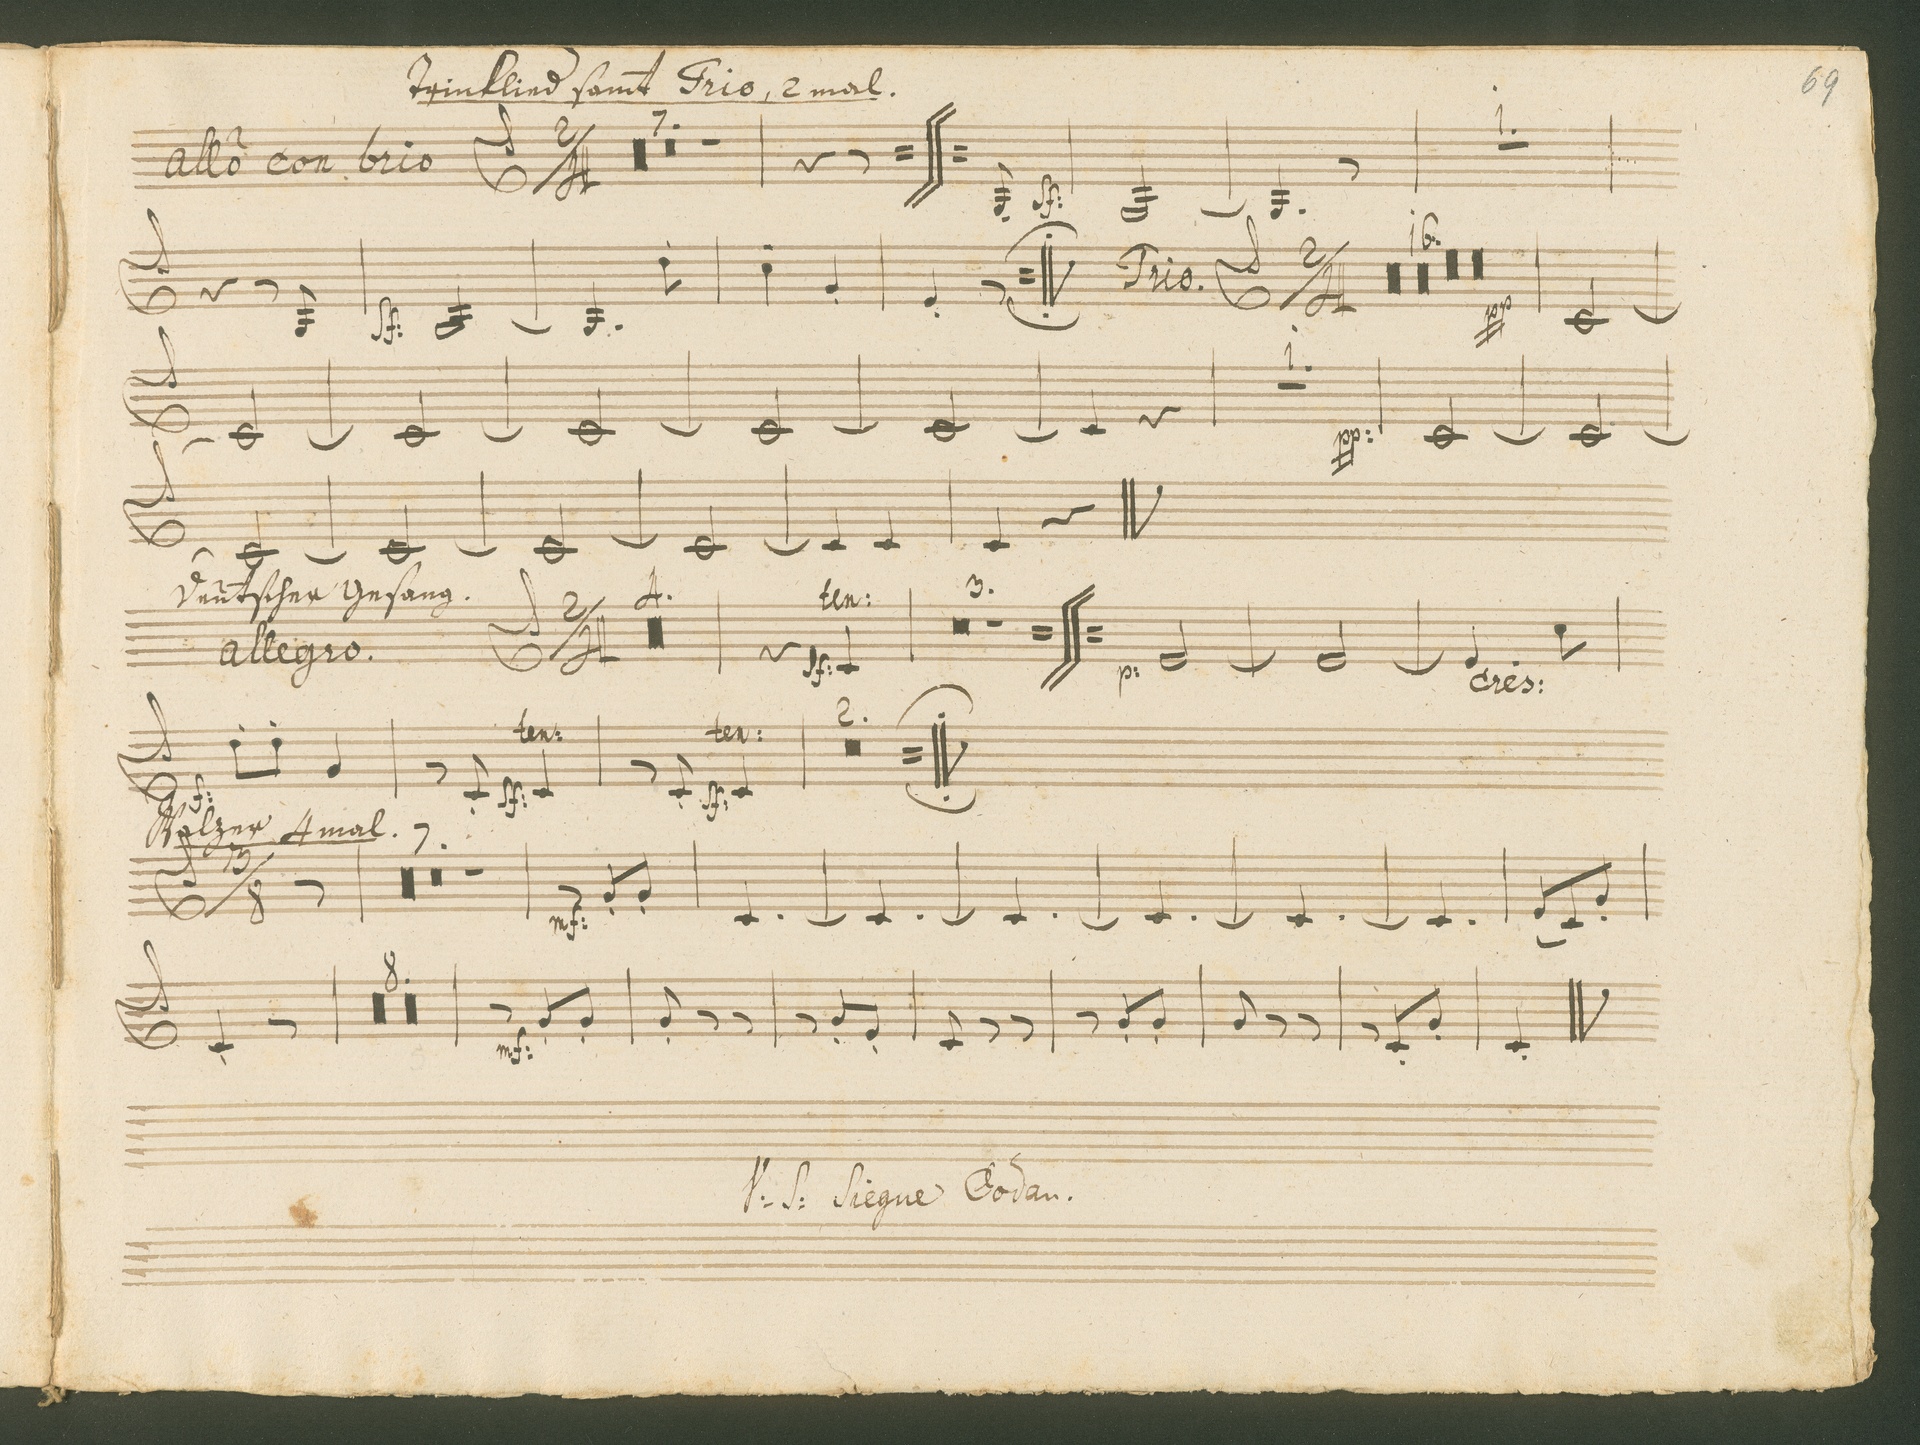 69
Trinklied samt Trio, 2 mal.
7.
1.
allo con brio 2/4
sf:
16.
Trio. 2/4
sf: pp
1.
pp:
Deutscher Gesang.
4. ten: 3.
allegro. 2/4
sf: p: cres:
ten: ten: 2.
f: sf: sf:
Walzer 4 mal. 7.
3/8
mf:
8.
mf:
V: S: Siegue Codan.